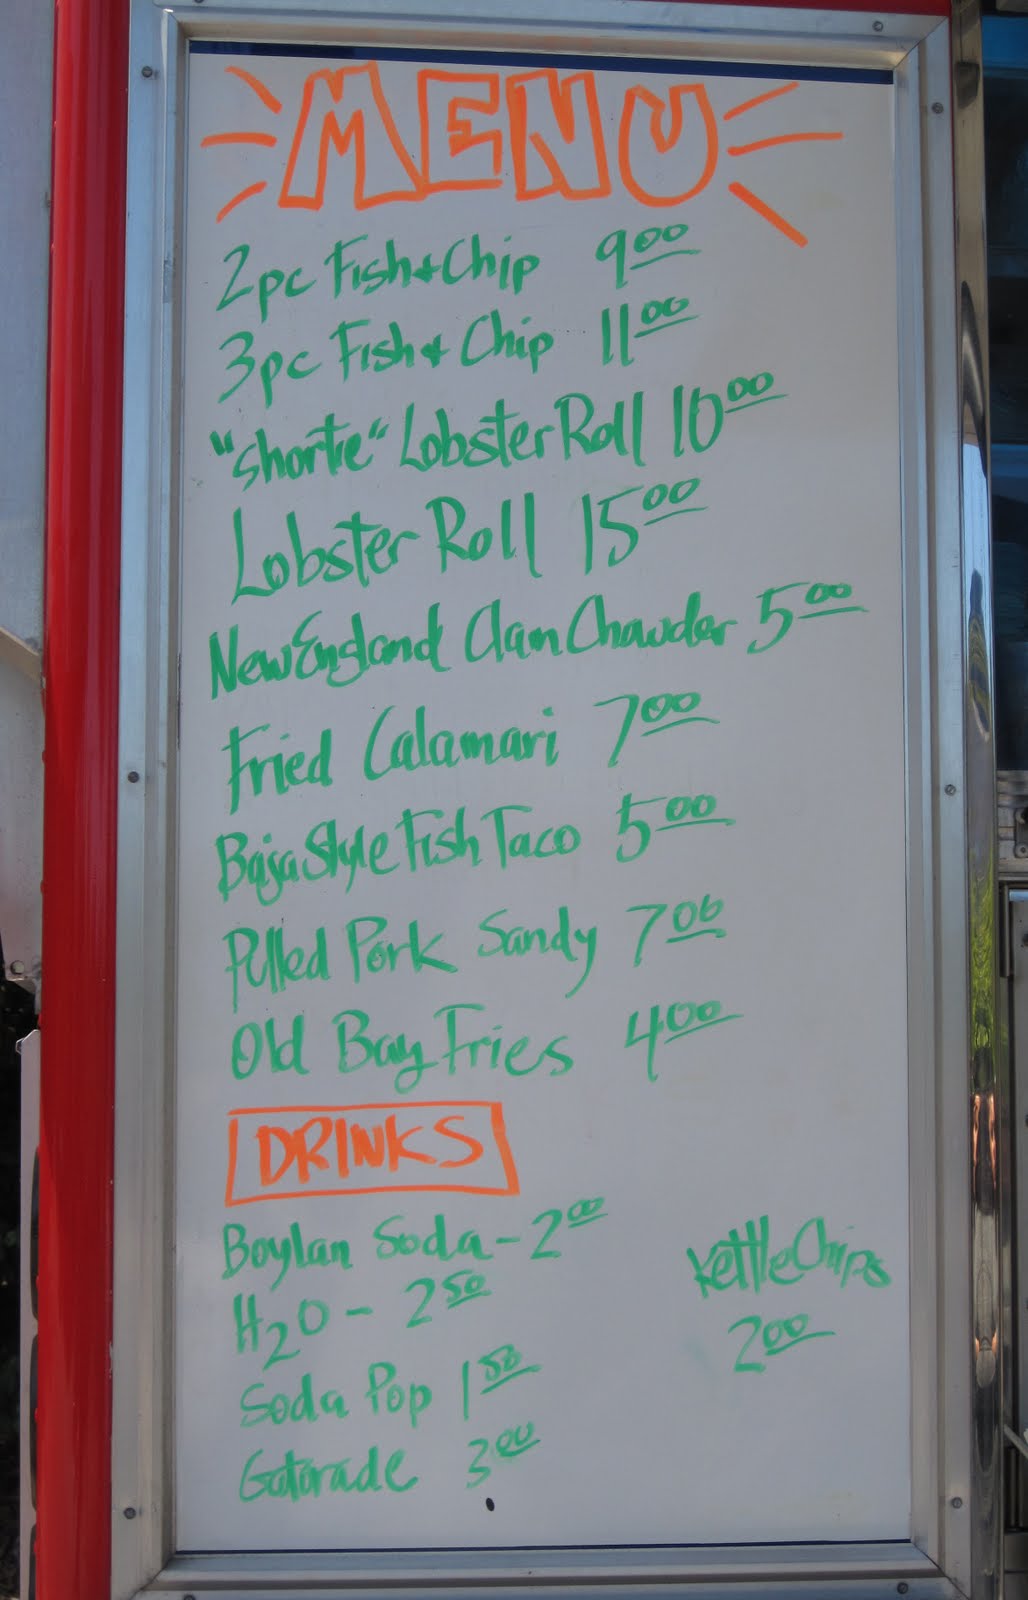 MENU
2pc Fish & Chip 9.00
3pc Fish & Chip 11.00
"Shortie" Lobster Roll 10.00
Lobster Roll 15.00
New England Clam Chowder 5.00
Fried Calamari 7.00
Baja Style Fish Taco 5.00
Pulled Pork Sandy 7.00
Old Bay Fries 4.00
DRINKS
Boylan Soda - 2.00
H2O - 2.50
Soda Pop 1.50
Gatorade 3.00
Kettle Chips
2.00